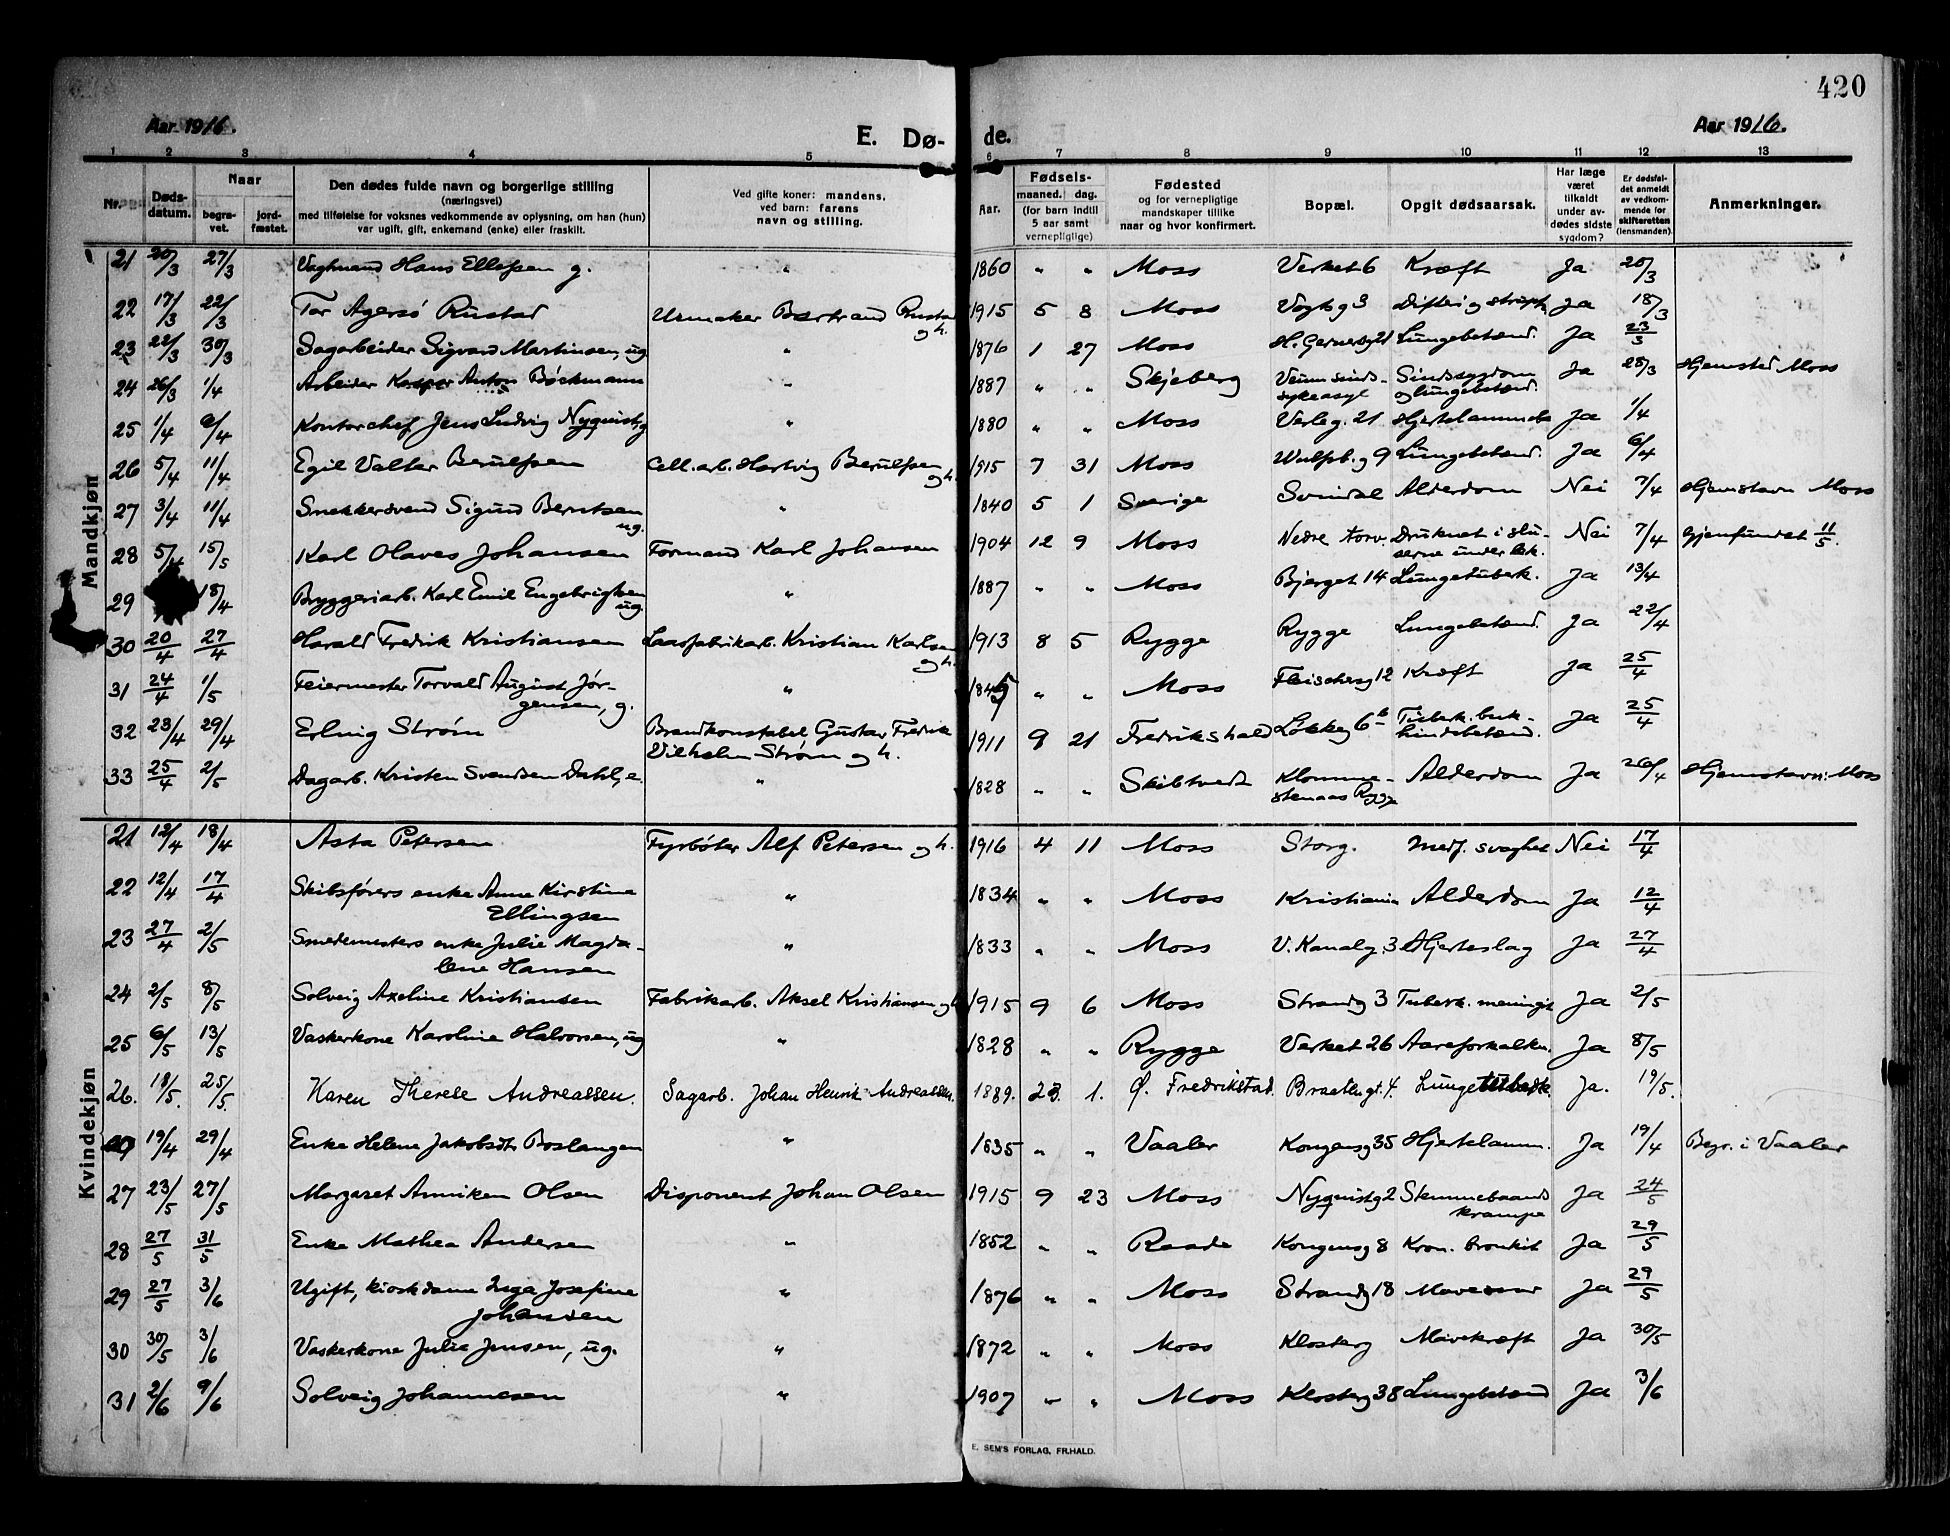 420
Aar 1916. E. Dø- de. Aar 1916.
1 2 3 4 5 6 7 8 9 10 11 12 13
Nr. Døds-datum. Naar begra-vet. jord-fæstet. Den dødes fulde navn og borgerlige stilling (næringsvei) med tilføielse for voksnes vedkommende av oplysning, om han (hun) var ugift, gift, enkemand (enke) eller fraskilt. Ved gifte koner: mandens, ved barn: farens navn og stilling. Aar. Fødsels- maaned. dag. (for barn indtil 5 aar samt vernepligtige) Fødested og for vernepligtige mandskaper tillike naar og hvor konfirmert. Bopæl. Opgit dødsaarsak. Har læge været tilkaldt under av-dødes sidste sygdom? Er dødsfal-det anmeldt av vedkom-mende for skifteretten (lensmanden). Anmerkninger.
Mandkjøn
21 20/3 27/3 Vaghmand Hans Ellefsen g. " 1860 " " Moss Verket 6 Kræft Ja 20/3
22 17/3 22/3 Tor Agersø Rustad Urmaker Bertrand Rustad og h. 1915 5 8 Moss Vogts g 3 Difteri og strupeh. Ja 18/3
23 22/3 30/3 Sagarbeider Sigvard Martinsen, ug. " 1876 1 27 Moss H. Gernersg 21 Lungebetænd. Ja 23/3
24 26/3 1/4 Arbeider Kasper Anton Bøckmann " 1887 " " Skjeberg Veum sinds-sykeasyl Sindssygdom og lungebetænd. Ja 28/3 Hjemsted Moss
25 1/4 9/4 Kontorchef Jens Ludvig Nyquist, g " 1880 " " Moss Verleg. 21 Hjertelammelse Ja 1/4
26 5/4 11/4 Egil Valter Berulfsen Cell.arb. Hartvig Berulfsen og h. 1915 7 31 Moss Wulfsb. g 9 Lungebetænd. Ja 6/4
27 3/4 11/4 Snekkersvend Sigurd Berntsen ug. " 1840 5 1 Sverige Svindal Alderdom Nei 7/4 Hjemstavn Moss
28 5/4 15/5 Karl Olaves Johansen Formand Karl Johansen 1904 12 9 Moss Nedre torv. Druknet i slu-serne under lek. Nei 7/4 Gjenfundet 11/5.
29 18/4 Bryggeriarb. Karl Emil Engebrigtsen ug. " 1887 " " Moss Bjerget 14 Lungetuberk. Ja 13/4
30 20/4 27/4 Harald Fredrik Kristiansen Laasfabrikarb. Kristian Karlsen og h. 1913 8 5 Rygge Rygge Lungebetænd. Ja 22/4
31 24/4 1/5 Feiermester Torvald August Jør-gensen, g. " 1845 " " Moss Fleischersg 12 Kræft Ja 25/4
32 23/4 29/4 Erling Strøm Brandkonstabel Gustav Fredrik Vilhelm Strøm og h. 1911 9 21 Fredrikshald Løkkeg 6 b Tuberk. buk-hindebetænd. Ja 25/4
33 25/4 2/5 Dagarb. Kristen Svendsen Dahl, e. " 1828 " " Skibtvedt Klomme-stenaas Rygge Alderdom Ja 26/4 Hjemstavn: Moss
Kvindekjøn
21 12/4 18/4 Asta Petersen Fyrbøter Alf Petersen og h. 1916 4 11 Moss Storg. Medf. svaghet Nei 17/4
22 12/4 17/4 Skibsførers enke Anne Kirstine Ellingsen " 1834 " " Moss Kristiania Alderdom Ja 12/4
23 27/4 2/5 Smedemesters enke Julie Magda-lene Hansen " 1833 " " Moss V. Kanalg. 3 Hjerteslag Ja 27/4
24 2/5 8/5 Solveig Axeline Kristiansen Fabrikarb. Aksel Kristiansen og h 1915 9 6 Moss Strandg 3 Tuberk. meningit Ja 2/5
25 6/5 13/5 Vaskerkone Karoline Halvorsen, ug " 1828 " " Rygge Verket 26 Aareforkalkn. Ja 8/5
26. 18/5. 25/5. Karen Therese Andreassen. Sagarb. Johan Henrik Andreassen. 1889. 1. Ø. Fredrikstad Braatengt. 4. Lungetuberk. Ja. 19/5.
19/4 29/4 Enke Helene Jakobsdt. Boslangen " 1835 " " Vaaler Kongensg 35 Hjertelamm. Ja 19/4 Begr. i Vaaler
27 23/5 27/5 Margaret Anniken Olsen Disponent Johan Olsen 1915 9 23 Moss Nyquistg 2 Stemmebaands krampe Ja 24/5
28 27/5 31/5 Enke Mathea Andersen " 1852 " " Raade Kongensg 8 Kron. bronkit Ja 29/5
29 27/5 3/6 Ugift, kioskdame Inga Josefine Johansen " 1876 " " Moss Strandg 18 Mavesaar Ja 29/5
30 30/5 3/6 Vaskerkone Julie Jensen, ug. " 1872 " " Moss Klosterg Mavekræft Ja 30/5
31 2/6 9/6 Solveig Johannesen " 1907 " " Moss Klosterg 38 Lungebetænd Ja 3/6
E. SEM'S FORLAG, FR.HALD.